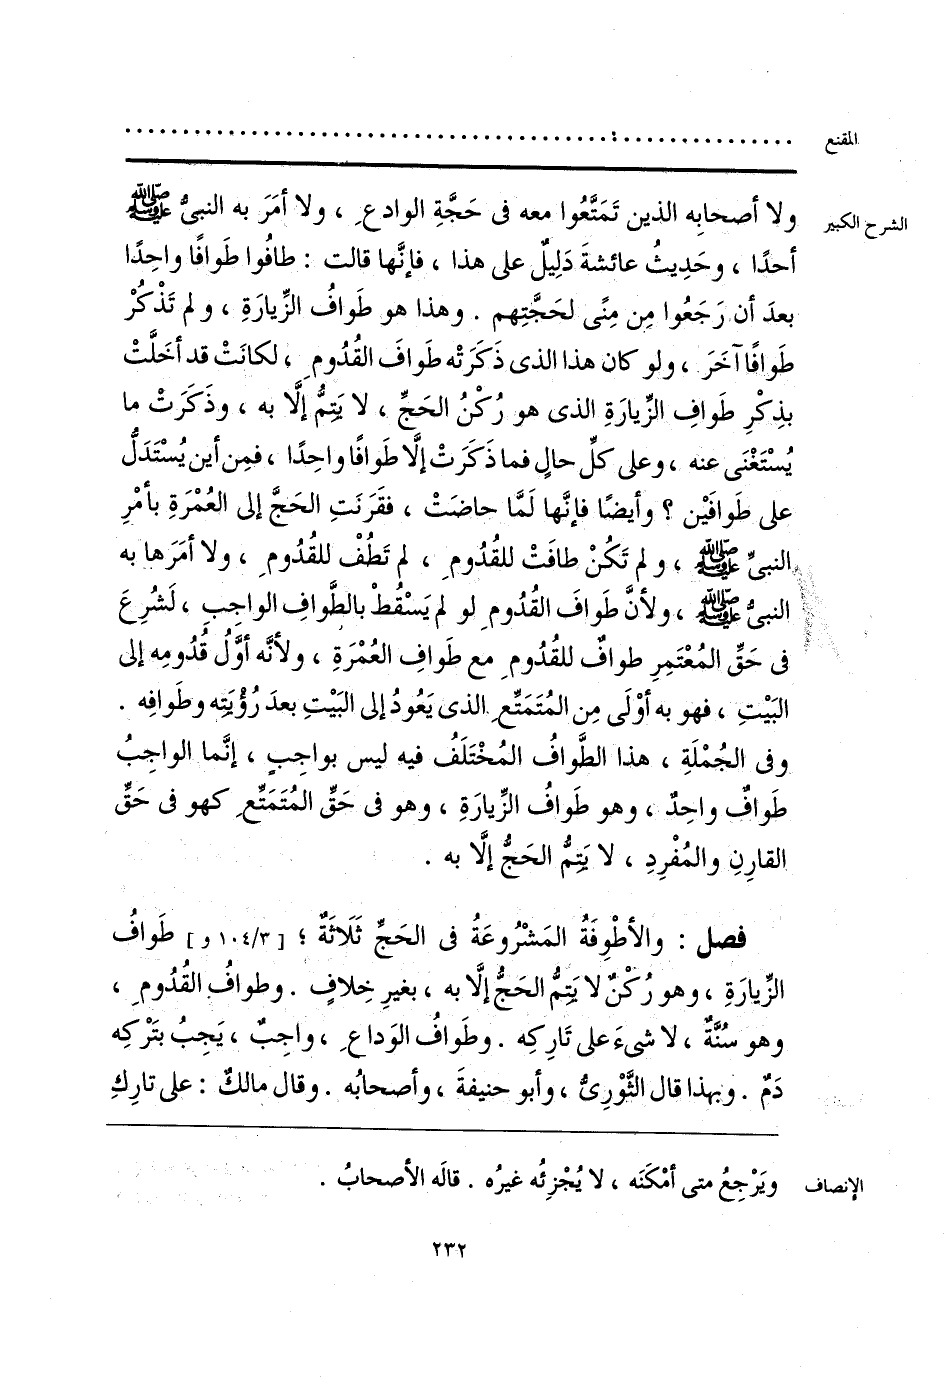 المقنع ................................................................
الشرح الكبير ولا أصحابِه الذين تَمَتَّعُوا معه فى حَجَّةِ الوادعِ ، ولا أمَرَ به النبىُّ ﷺ
أحدًا ، وحَدِيثُ عائشةَ دَلِيلٌ على هذا ، فإنَّها قالت : طافُوا طَوافًا واحِدًا
بعدَ أن رَجَعُوا مِن مِنًى لحَجَّتِهم . وهذا هو طَوافُ الزِّيارَةِ ، ولم تَذْكُرْ
طَوافًا آخَرَ ، ولو كان هذا الذى ذَكَرَتْه طَوافَ القُدُومِ ، لكانَتْ قد أخَلَّتْ
بذِكْرِ طَوافِ الزِّيارَةِ الذى هو رُكْنُ الحَجِّ ، لا يَتِمُّ إلَّا به ، وذَكَرَتْ ما
يُسْتَغْنَى عنه ، وعلى كلِّ حالٍ فما ذَكَرَتْ إلَّا طَوافًا واحِدًا ، فمِن أين يُسْتَدَلُّ
على طَوافَيْن ؟ وأيضًا فإنَّها لَمَّا حاضَتْ ، فقَرَنَتِ الحَجَّ إلى العُمْرَةِ بأمْرِ
النبىِّ ﷺ ، ولم تَكُنْ طافَتْ للقُدُومِ ، لم تَطُفْ للقُدُومِ ، ولا أمَرَها به
النبىُّ ﷺ ، ولأنَّ طَوافَ القُدُومِ لو لم يَسْقُطْ بالطَّوافِ الواجِبِ ، لَشُرِعَ
فى حَقِّ المُعْتَمِرِ طوافٌ للقُدُومِ مع طَوافِ العُمْرَةِ ، ولأنَّه أوَّلُ قُدُومِه إلى
البَيْتِ ، فهو به أوْلَى مِن المُتَمَتِّعِ الذى يَعُودُ إلى البَيْتِ بعدَ رُؤْيَتِه وطَوافِه .
وفى الجُمْلَةِ ، هذا الطَّوافُ المُخْتَلَفُ فيه ليس بواجِبٍ ، إنَّما الواجِبُ
طَوافٌ واحِدٌ ، وهو طَوافُ الزِّيارَةِ ، وهو فى حَقِّ المُتَمَتِّعِ كهو فى حَقِّ
القارِنِ والمُفْرِدِ ، لا يَتِمُّ الحَجُّ إلَّا به .
فصل : والأطْوِفَةُ المَشْرُوعَةُ فى الحَجِّ ثَلَاثَةٌ ؛ [ ٣/١٠٤ و ] طَوافُ
الزِّيارَةِ ، وهو رُكْنٌ لا يَتِمُّ الحَجُّ إلَّا به ، بغيرِ خِلافٍ . وطَوافُ القُدُومِ ،
وهو سُنَّةٌ ، لا شىءَ على تَارِكِه . وطَوافُ الوَداعِ ، واجِبٌ ، يَجِبُ بتَرْكِه
دَمٌ . وبهذا قال الثَّوْرِىُّ ، وأبو حنيفةَ ، وأصحابُه . وقال مالكٌ : على تارِكِ
الإنصاف ويَرْجِعُ متى أمْكَنَه ، لا يُجْزِئُه غيرُه . قالَه الأصحابُ .
٢٣٢